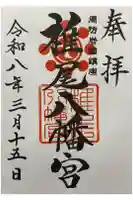 奉拝
椎尾八幡宮
令和八年三月十五日